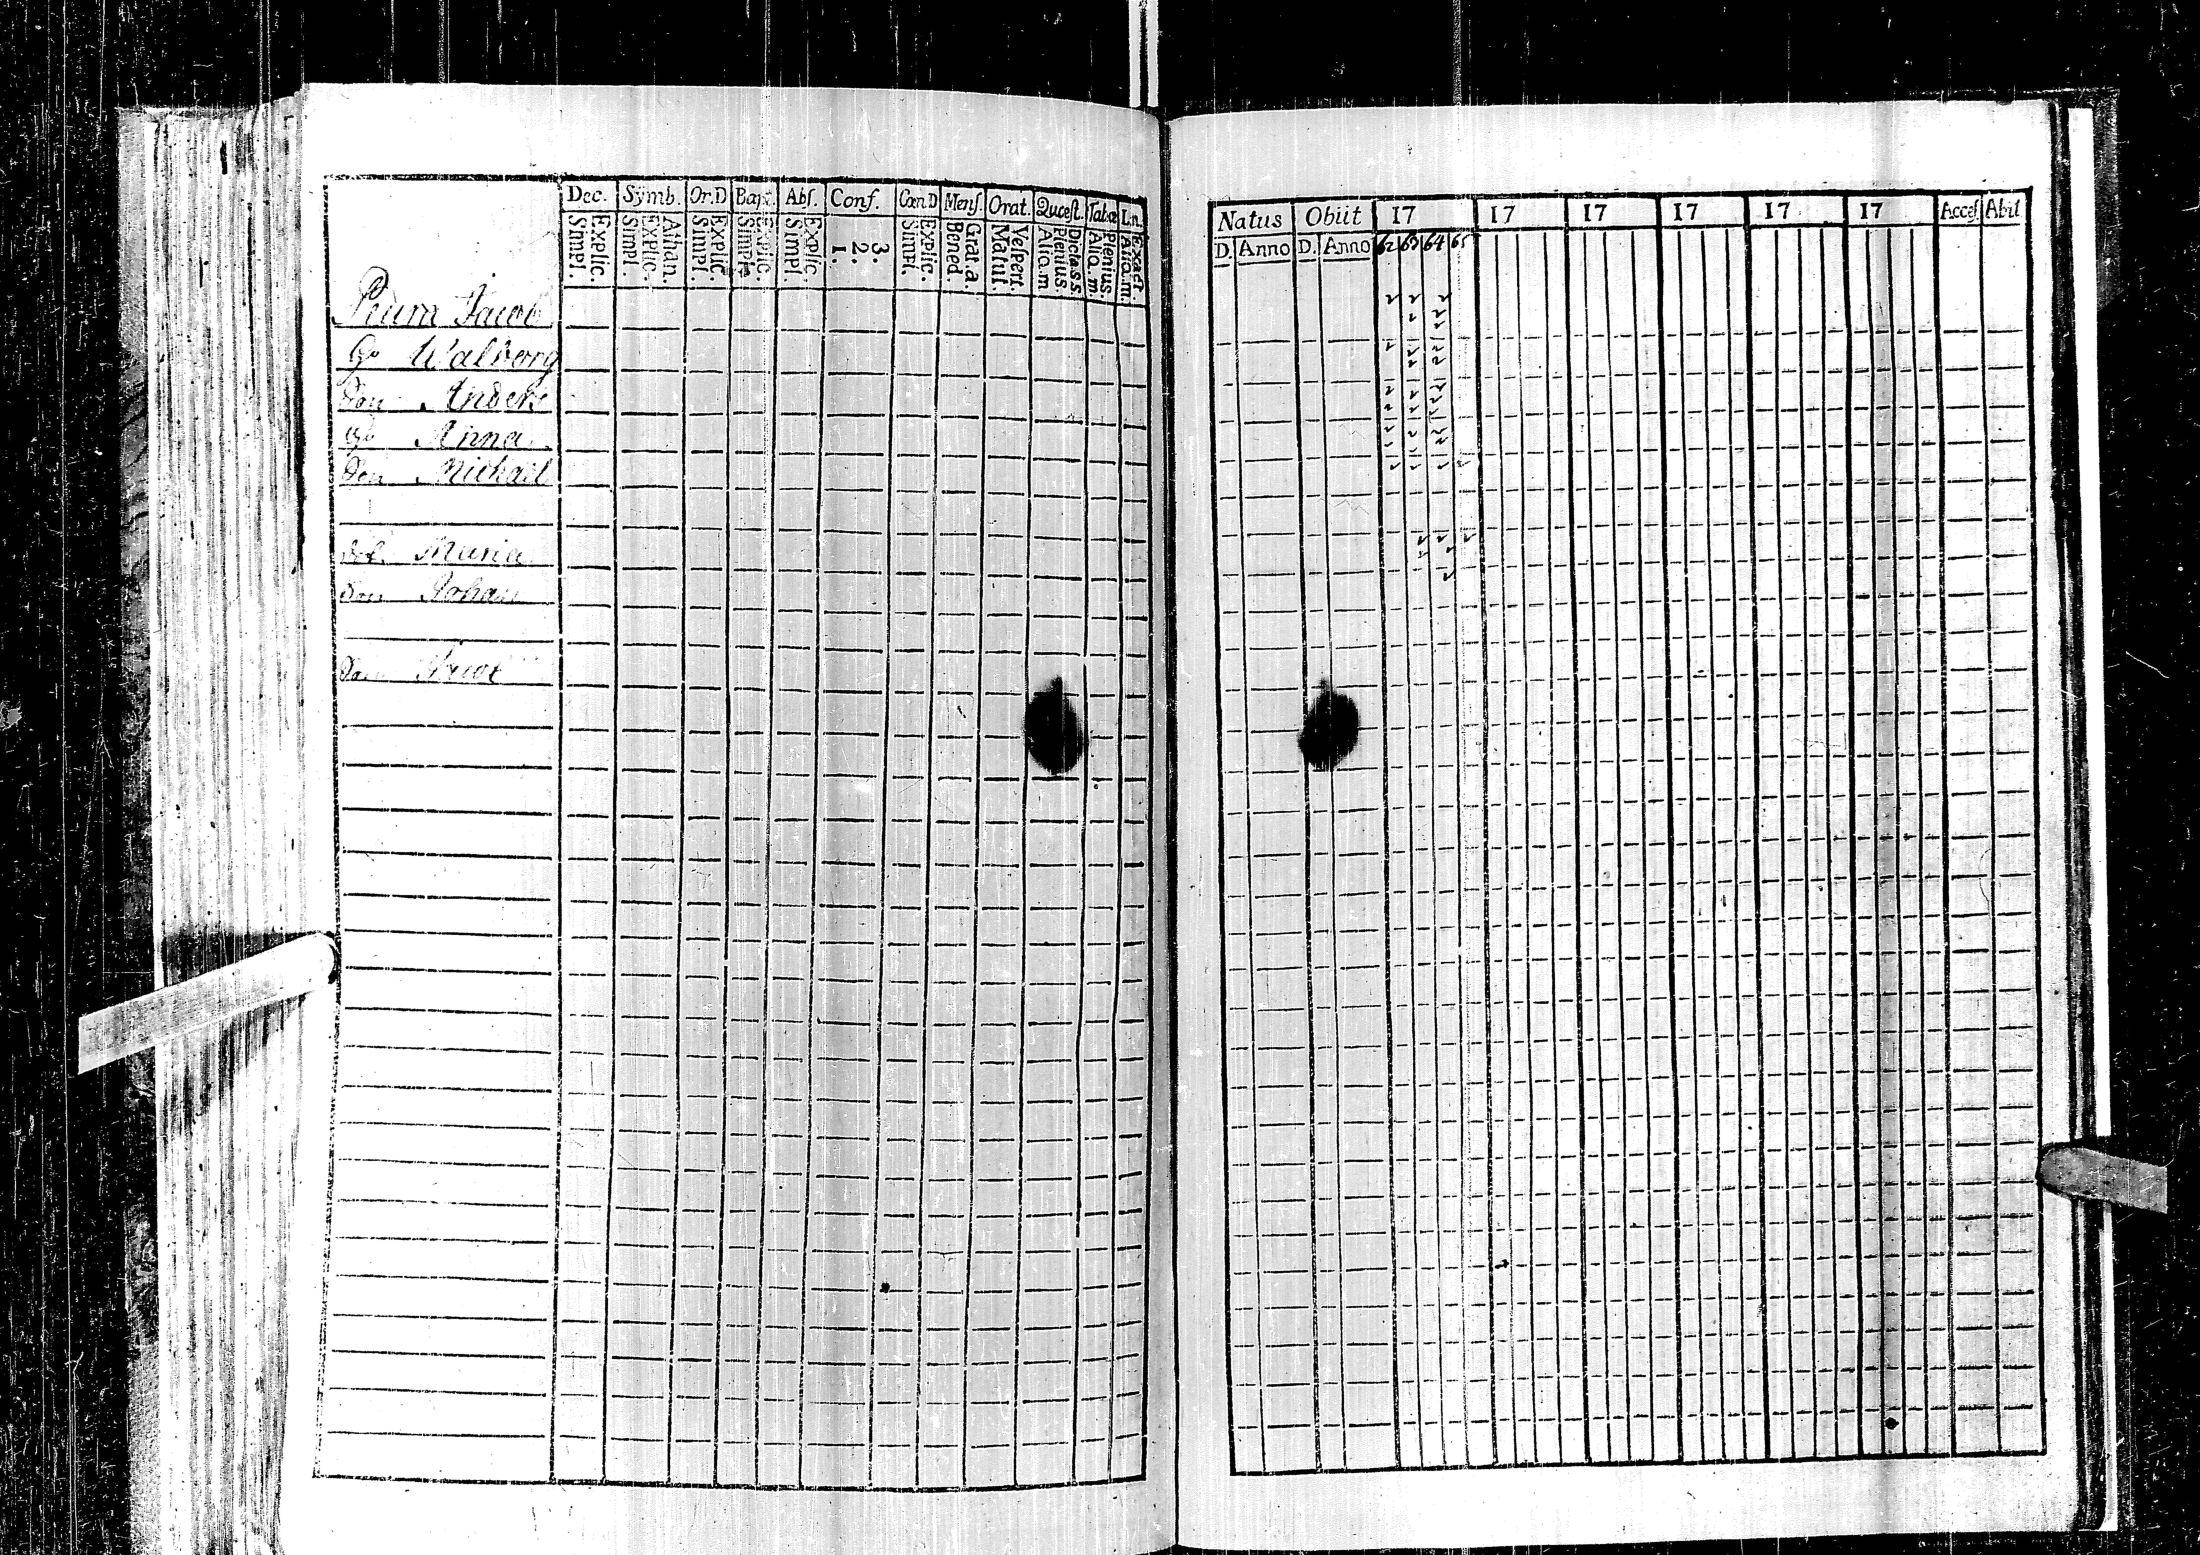 Dec. Symb. Or.D Bapt. Abs. Conf. Cœn D Mens. Orat. Quæst. Tabæ Ln.
Simpl. Explic. Simpl. Explic. Athan. Simpl. Explic. Simpl. Explic. Simpl. Explic. 1. 2. 3. Simpl. Explic. Bened. Grat.a. Matut. Vespert. Aliq.m Plenius Dicta s.s. Aliq.m. Plenius. Aliq.m. Exact.
Jacob
Walborg
Son Anders
Anna
Son Michail
Maria
Son Johan
Natus Obiit 17 17 17 17 17 17 Acces Abiit
D. Anno D. Anno 62 63 64 65